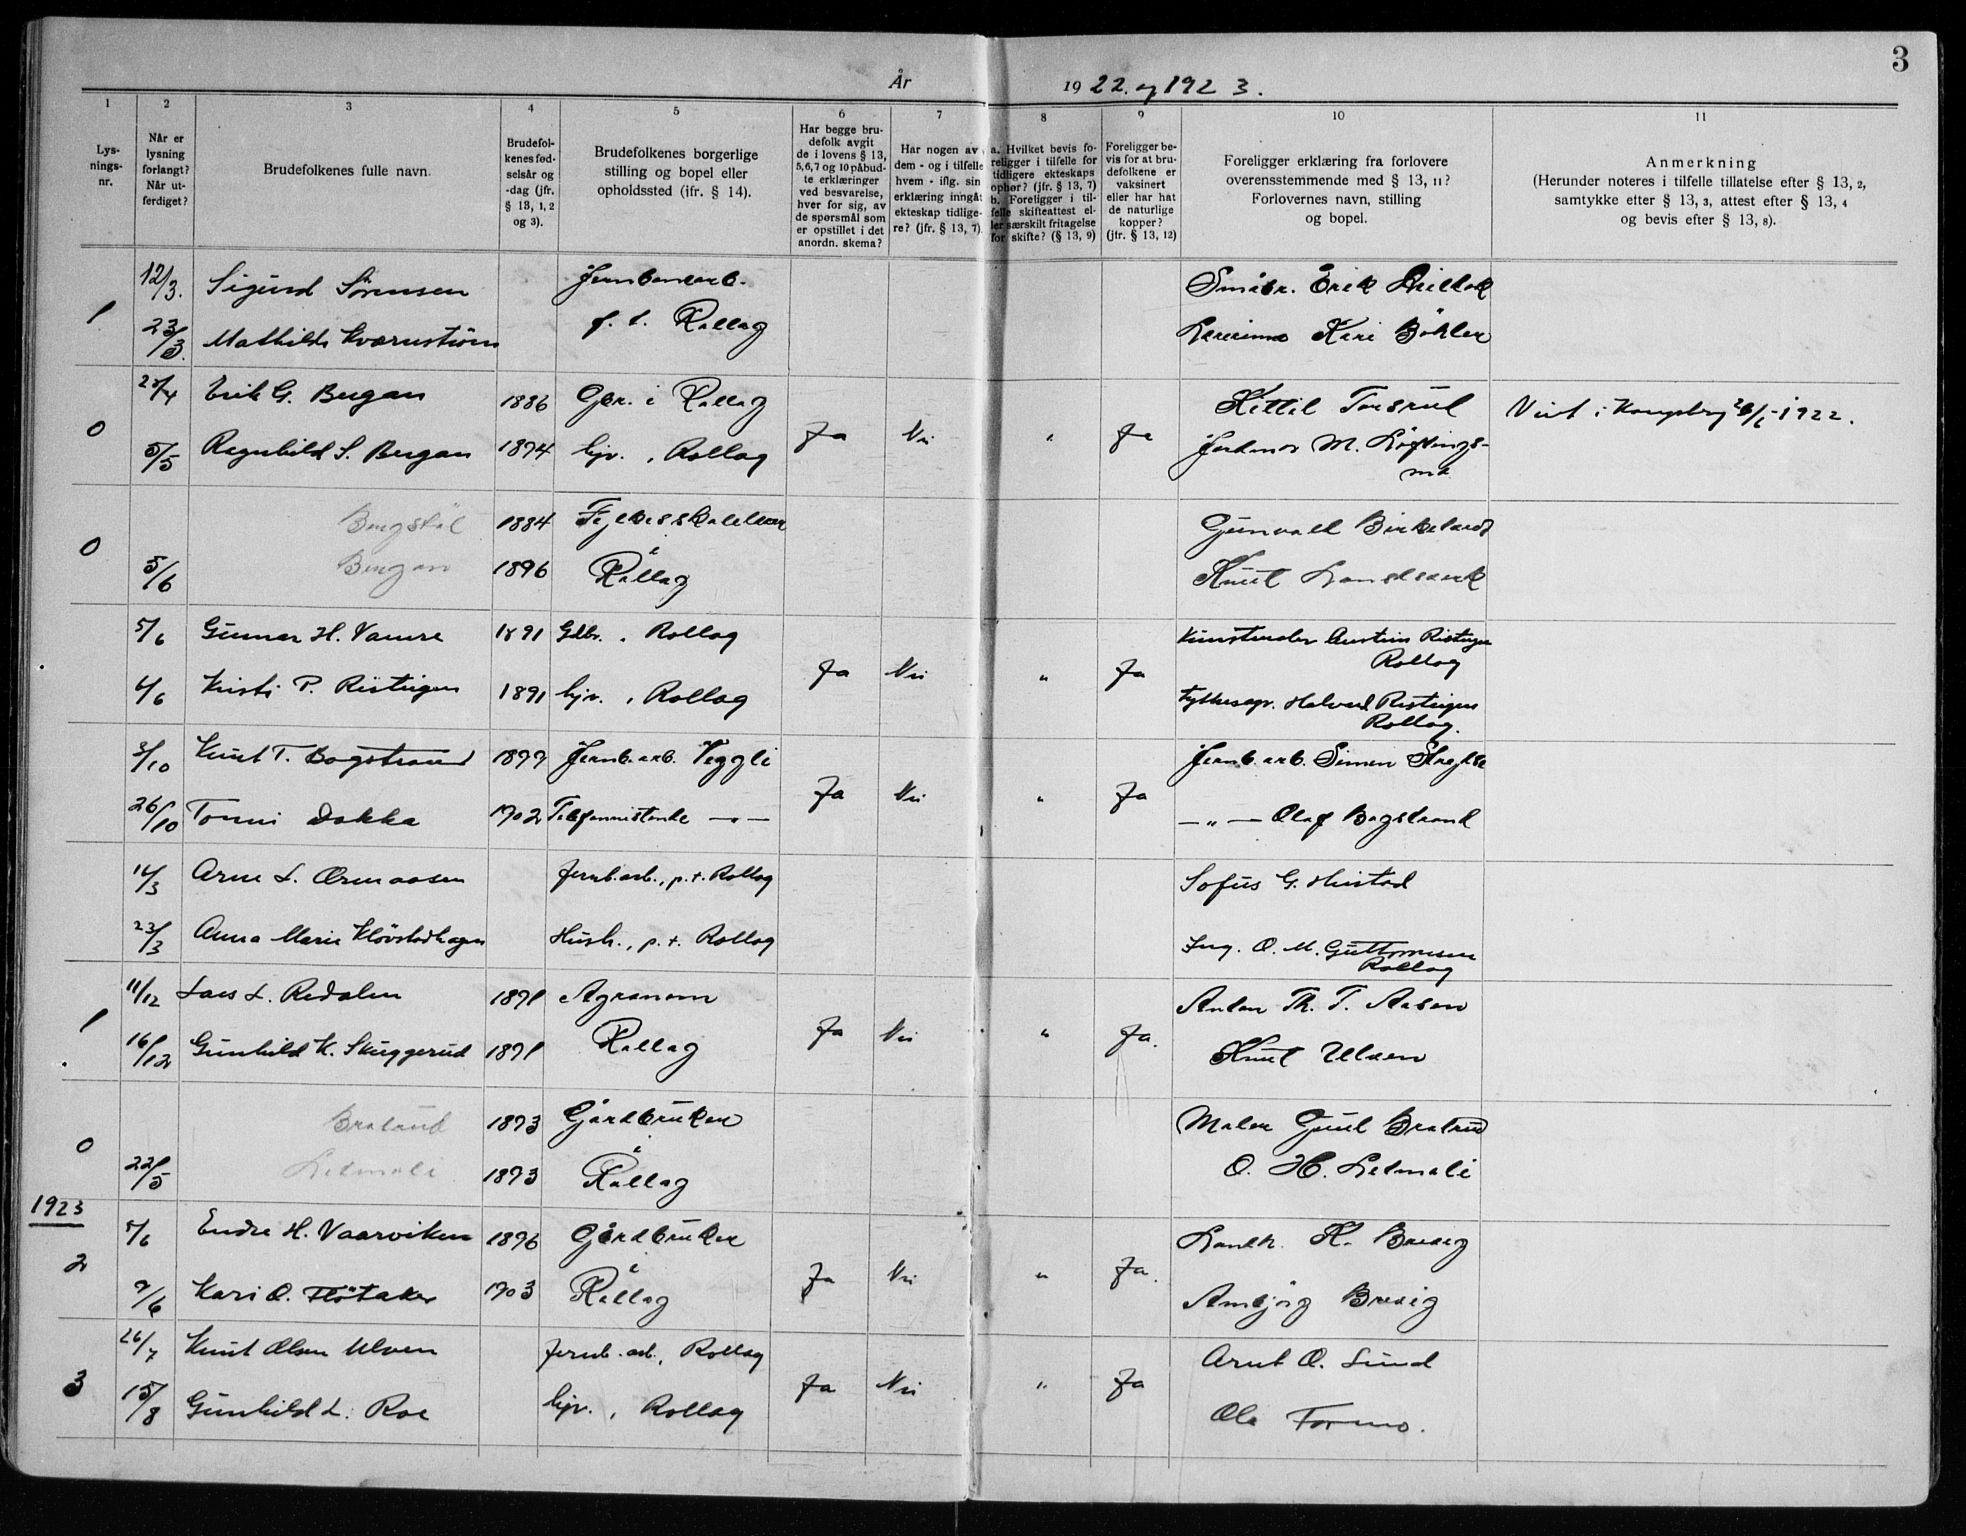 3
År 1922. og 1923.
1 2 3 4 5 6 7 8 9 10 11
Lys-
nings-
nr.
Når er
lysning
forlangt?
Når ut-
ferdiget?
Brudefolkenes fulle navn.
Brudefol-
kenes fød-
selsår og
-dag (jfr.
§ 13, 1, 2
og 3).
Brudefolkenes borgerlige
stilling og bopel eller
opholdssted (ifr. § 14).
Har begge bru-
defolk avgit
de i lovens § 13,
5, 6, 7 og 10 påbud-
te erklæringer
ved besvarelse,
hver for sig, av
de spørsmål som
er opstillet i det
anordn. skema?
Har nogen av
dem - og i tilfelle
hvem - iflg. sin
erklæring inngåt
ekteskap tidlige-
re? (jfr. § 13, 7)
a. Hvilket bevis fo-
religger i tilfelle for
tidligere ekteskaps
ophør? (jfr. § 13, 7)
b. Foreligger i til-
felle skifteattest el-
ler særskilt fritagelse
for skifte? (§ 13, 9)
Foreligger be-
vis for at bru-
defolkene er
vaksinert
eller har hat
de naturlige
kopper?
(jfr. § 13, 12)
Foreligger erklæring fra forlovere
overensstemmende med § 13, 11?
Forlovernes navn, stilling
og bopel.
Anmerkning
(Herunder noteres i tilfelle tillatelse efter § 13, 2,
samtykke efter § 13, 3, attest efter § 13, 4
og bevis efter § 13, 8).
1 12/3. Sigurd Sørensen Jernbanearb. Småbr. Erik
23/3. Mathilde Kværnstrøm p. t. Rollag Lærerinne Kari Bøhler
0 25/4 Erik G. Bergan 1886 Gbr. i Rollag Ja Nei " Ja Kittil Torsrud
5/5 Regnhild S. Bergan 1894 hjv., Rollag Jordmor M.
26/1 1922.
0 Bergstøl 1884 Fylkesskolelærer Gunvald Birkeland
5/6 Bergan 1896 Rållag Knut Landsverk
5/6 Gunnar H. Vamre 1891 Gdbr., Rollag Ja Nei " Ja Kunstmaler Austin Risteigen
Rollag
6/6 Kristi P. Risteigen 1891 hjv., Rollag Halvard Risteigen
Rollag.
3/10 Knut T. Bogstrand 1899 Jernb.arb. Veggli Ja Nei " Ja Jernb.arb. Simen
26/10 Tonni Dokka 1902 Telefonnistinde — " — — " — Olaf Bogstrand
14/3 Arne L. Ormaasen Jernb.arb., p. t. Rollag Sofus G. Hustad
23/3 Anna Marie Kløvstadhagen Hush., p. t. Rollag Ing. O. M. Guttormsen
Rollag
1 11/12 Lars L. Rødalen 1891 Agronom Ja Nei " Ja. Anton Th. T. Aasen
16/12 Gunhild K. Skuggerud 1891 Rollag Knut Ulven
0 Bratrud 1893 Gårdbruker Maler Gunl Bratrud
22/5 Letmoli 1893 Rållag O. H. Letmoli
1923
2 5/6 Endre H. Vaarviken 1896 Gårdbruker Ja Nei " Ja. Landh. H. Brevig
9/6 Kari O. Fløtaker 1903 Rållag Ambjørg Brevig
3 26/7 Knut Olsen Ulven Jernb.arb., Rollag Ja Nei " Ja Arnt O. Lund
15/8 Gunhild L. Roe hjv., Rollag Ola Formo.